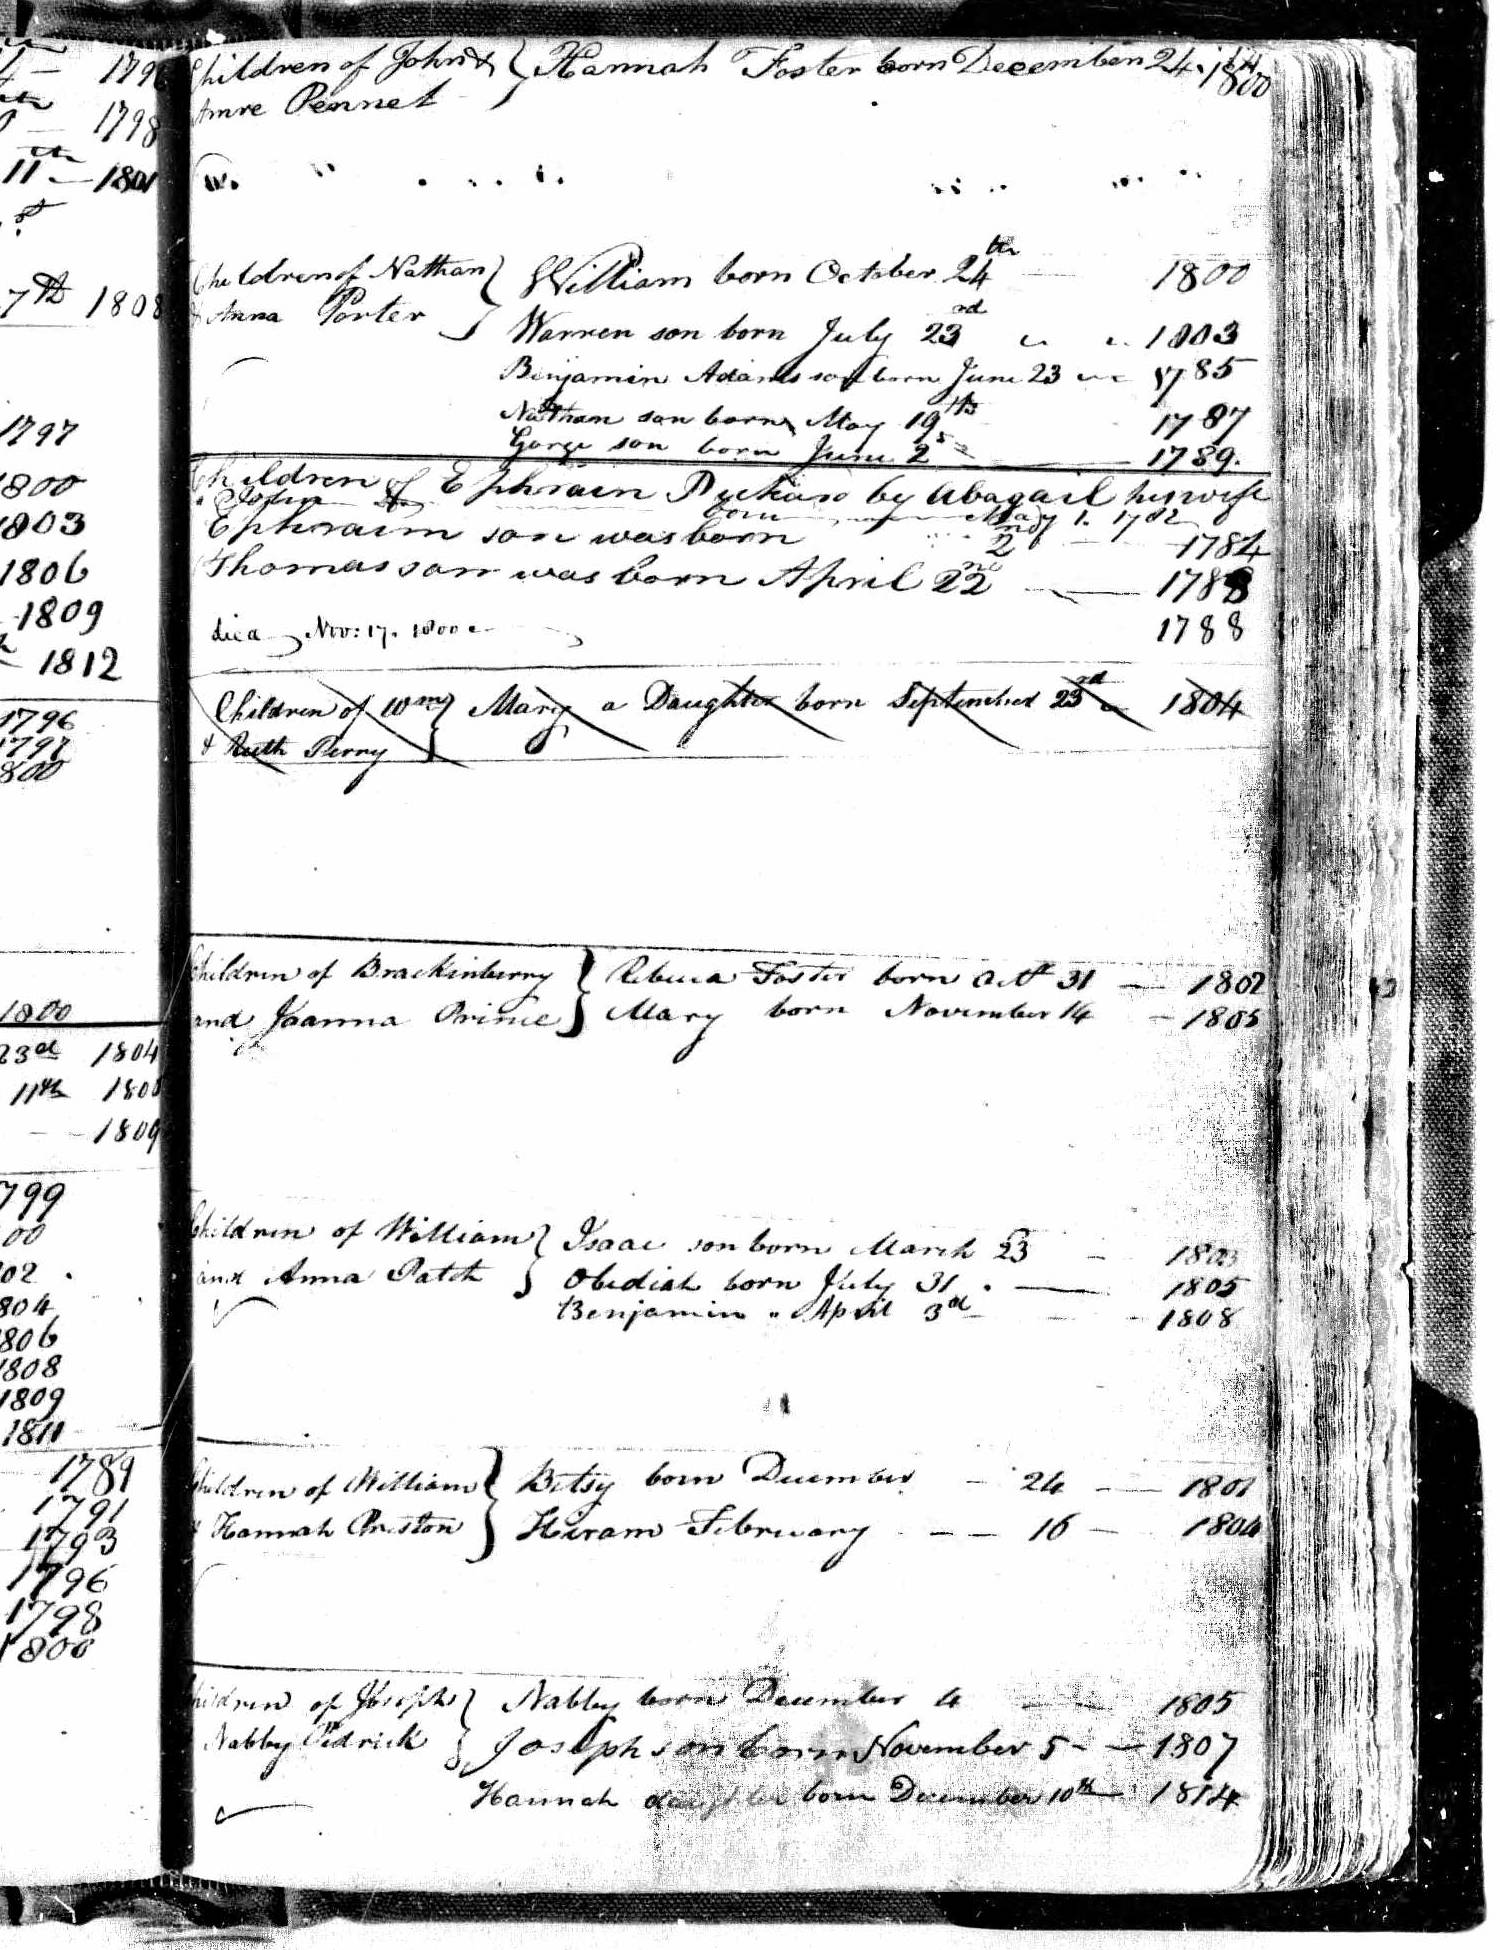 4 — 1796
1798
11th — 1801
7th 1808
1797
1800
1803
1806
1809
1812
1796
1797
1800
1800
23d 1804
11th 180
1809
1799
00
02 .
1804
1806
1808
1809
1811
1789
1791
1793
1796
1798
1800
Children of John & } Hannah Foster born December 24th 1800
Pennel
Children of Nathan } William born October 24th — 1800
& Anna Porter
Warren son born July 23rd " " 1803
Benjamin Adams son born June 23 1785
Nathan son born May 19th 1787
George son born June 2 — 1789.
Children of Ephraim by Abagail his wife
John born May 1. 1782
Ephraim son was born 2nd 1784
Thomas son was born April 22nd — 1788
died Nov: 17. 1800
1788
Children of Wm } Mary a Daughter born September 23rd 1804
& Ruth Perry
Children of Brackinberry } Rebecca Foster born Oct 31 — 1802
and Joanna Prince } Mary born November 14 — 1805
Children of William } Isaac son born March 23 — 1803
and Anna Patch } Obediah born July 31 . — 1805
Benjamin " April 3d — 1808
Children of William } Betsy born December — 24 — 1801
& Hannah Preston } Hiram February — — 16 — 1804
Children of Joseph } Nabby born December 4 — 1805
Nabby Pedrick } Joseph son born November 5 — 1807
Hannah daughter born December 10th — 1814